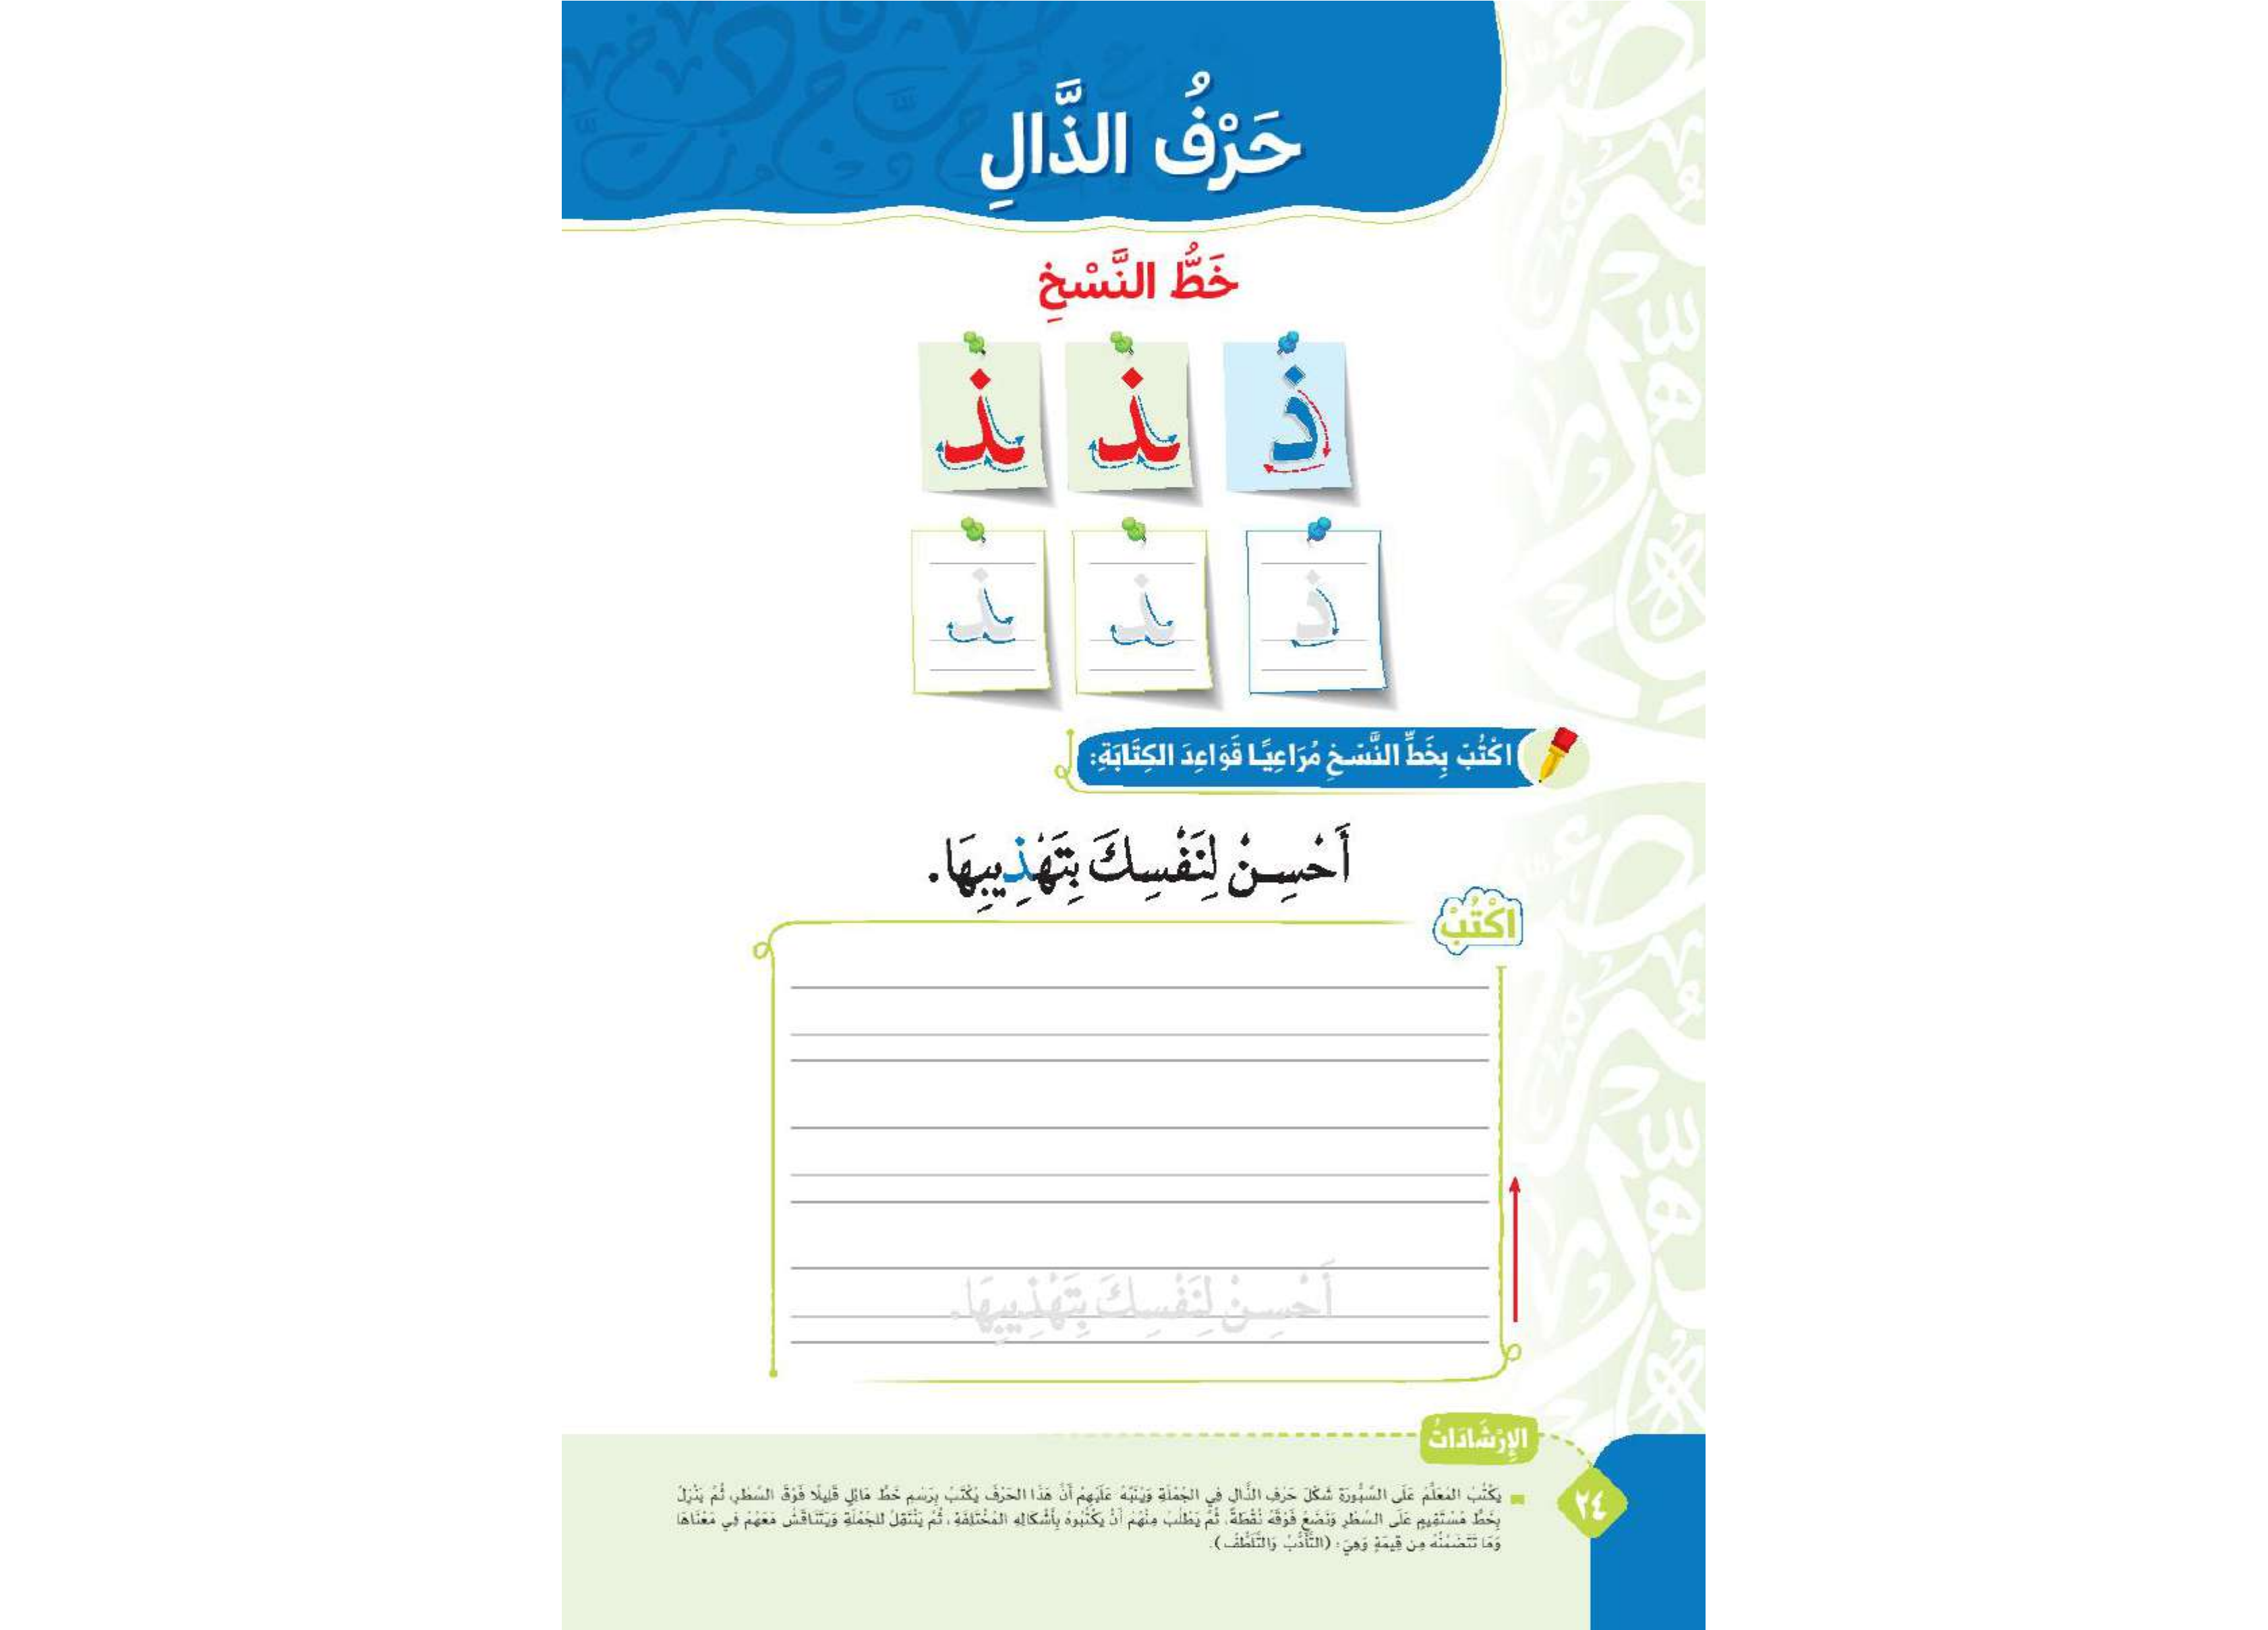 حَرْفُ الذَّالِ
خَطُّ النَّسْخِ
ذ ـذ ـذ
ذ ـذ ـذ
اكْتُبْ بِخَطِّ النَّسْخِ مُرَاعِيًا قَوَاعِدَ الكِتَابَةِ:
أَحْسِنْ لِنَفْسِكَ بِتَهْذِيبِهَا.
اكْتُبْ
أَحْسِنْ لِنَفْسِكَ بِتَهْذِيبِهَا.
الإِرْشَادَاتُ
يَكْتُبُ المُعَلِّمُ عَلَى السَّبُّورَةِ شَكْلَ حَرْفِ الذَّالِ فِي الجُمْلَةِ وَيُنَبِّهُ عَلَيْهِمْ أَنَّ هَذَا الحَرْفَ يُكْتَبُ بِرَسْمِ خَطٍّ مَائِلٍ قَلِيلًا فَوْقَ السَّطْرِ، ثُمَّ يَنْزِلُ
بِخَطٍّ مُسْتَقِيمٍ عَلَى السَّطْرِ وَنَضَعُ فَوْقَهُ نُقْطَةً، ثُمَّ يَطْلُبُ مِنْهُمْ أَنْ يَكْتُبُوهُ بِأَشْكَالِهِ المُخْتَلِفَةِ، ثُمَّ يَنْتَقِلُ لِلجُمْلَةِ وَيَتَنَاقَشُ مَعَهُمْ فِي مَعْنَاهَا
وَمَا تَتَضَمَّنُهُ مِن قِيمَةٍ وَهِيَ: (التَّأَدُّبُ وَالتَّلَطُّفُ).
٢٤